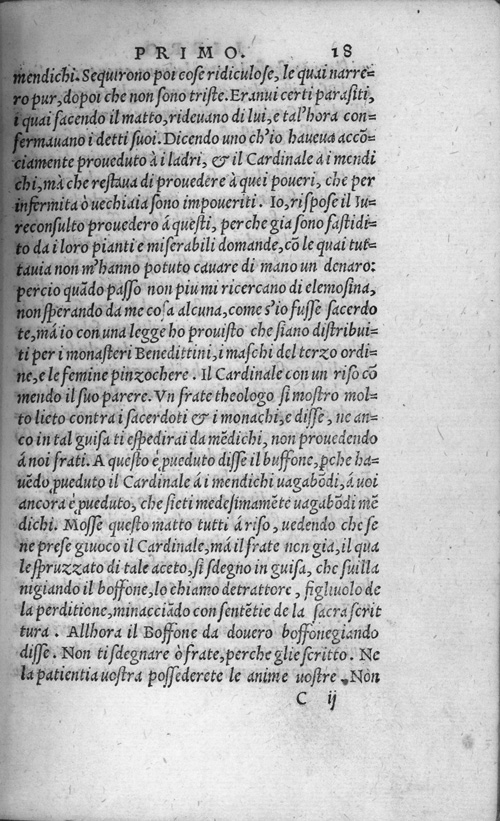 PRIMO. 18
mendichi. Sequirono poi cose ridiculose, le quai narre=
ro pur, dopoi che non sono triste. Eranui certi parasiti,
i quai facendo il matto, rideuano di lui, e tal'hora con=
fermauano i detti suoi. Dicendo uno ch'io haueua accō=
ciamente proueduto à i ladri, & il Cardinale a i mendi
chi, mà che restaua di prouedere à quei poueri, che per
infermita ò uechiaia sono impoueriti. Io, rispose il Iu=
reconsulto prouedero á questi, perche gia sono fastidi=
to da i loro pianti e miserabili domande, cō le quai tut=
tauia non m'hanno potuto cauare di mano un denaro:
percio quādo passo non piu mi ricercano di elemosina,
non sperando da me cosa alcuna, come s'io fusse sacerdo
te, má io con una legge ho prouisto che siano distribui=
ti per i monasteri Benedittini, i maschi del terzo ordi=
ne, e le femine pinzochere. Il Cardinale con un riso cō
mendo il suo parere. Vn frate theologo si mostro mol=
to lieto contra i sacerdoti & i monachi, e disse, ne an=
co in tal guisa ti espedirai da mēdichi, non prouedendo
á noi frati. A questo é ꝓueduto disse il buffone, ꝑche ha=
uēdo ꝓueduto il Cardinale á i mendichi uagabōdi, á uoi
ancora é ꝓueduto, che sieti medesimamēte uagabōdi mē
dichi. Mosse questo matto tutti á riso, uedendo che se
ne prese giuoco il Cardinale, má il frate non gia, il qua
le spruzzato di tale aceto, si sdegno in guisa, che suilla
nigiando il boffone, lo chiamo detrattore, figliuolo de
la perditione, minacciādo con sentētie de la sacra scrit
tura. Allhora il Boffone da douero boffonegiando
disse. Non ti sdegnare ò frate, perche glie scritto. Ne
la patientia uostra possederete le anime uostre. Non
C ij